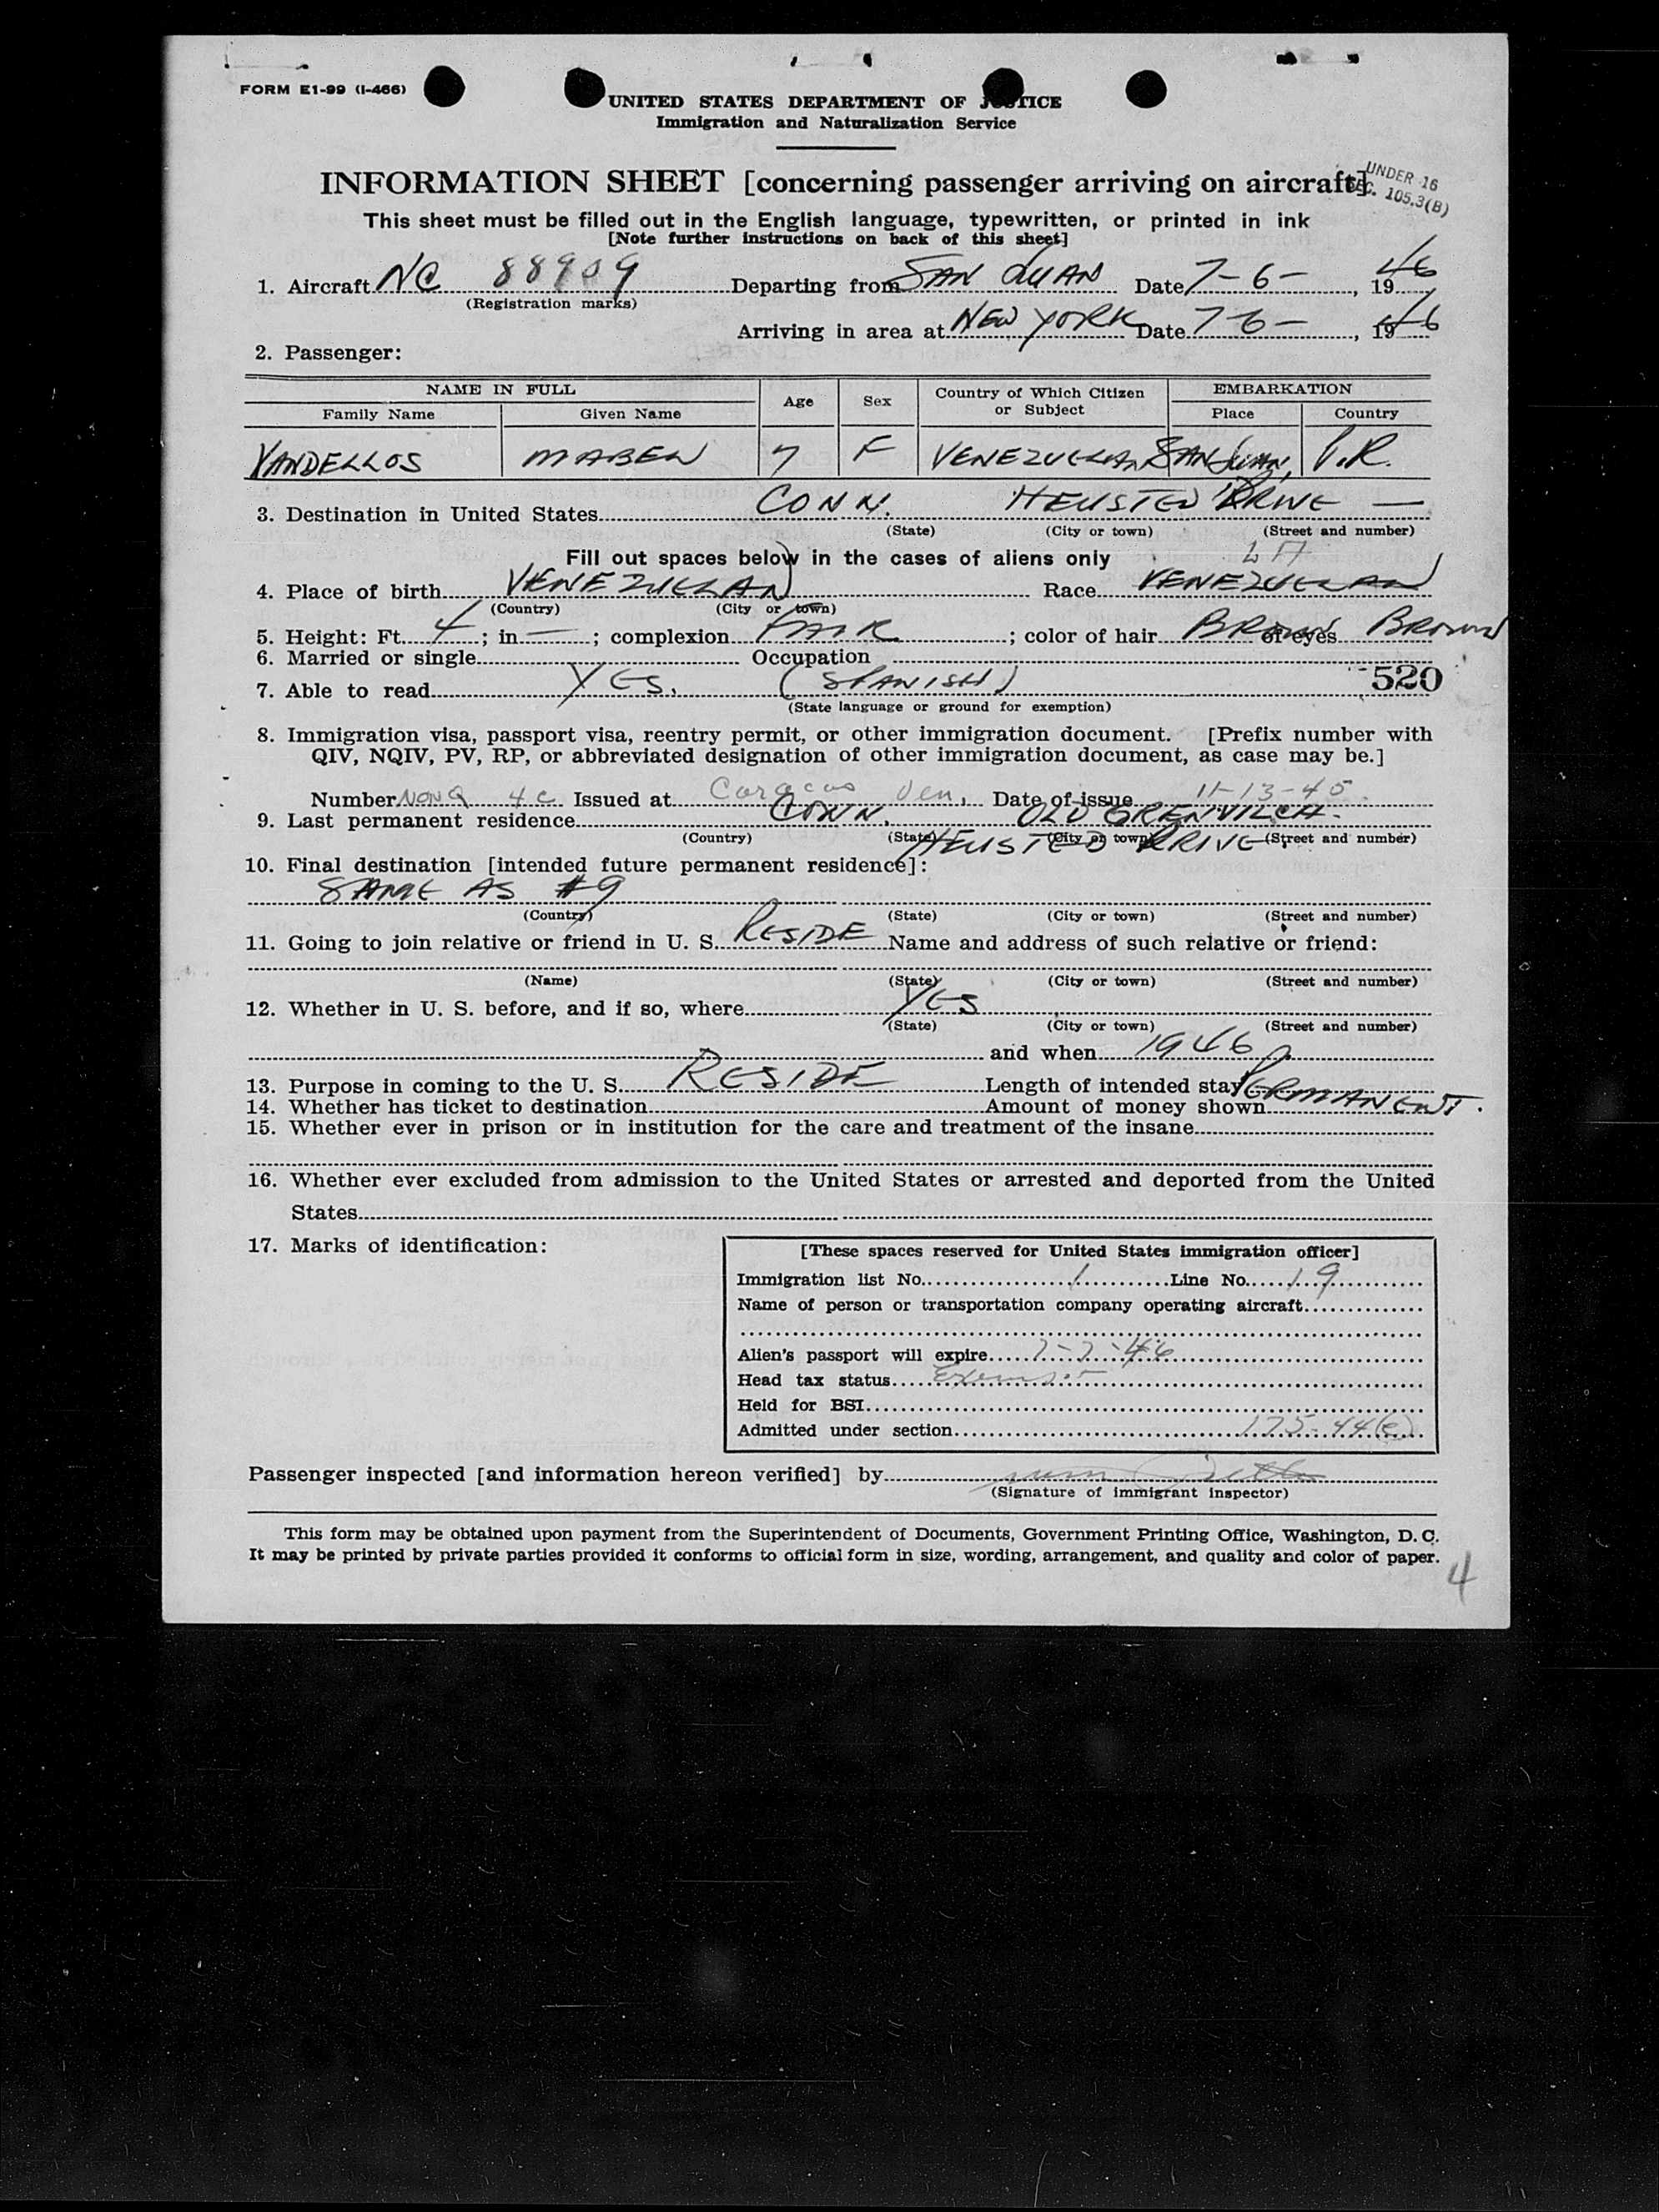 FORM E1-99 (I-466)
UNITED STATES DEPARTMENT OF JUSTICE
Immigration and Naturalization Service
INFORMATION SHEET [concerning passenger arriving on aircraft].
UNDER 16
SEC. 105.3(B)
This sheet must be filled out in the English language, typewritten, or printed in ink
[Note further instructions on back of this sheet]
1. Aircraft NC 88909 Departing from SAN JUAN Date 7-6-, 1946
(Registration marks)
Arriving in area at NEW YORK Date 7-6-, 1946
2. Passenger:
NAME IN FULL Age Sex Country of Which Citizen or Subject EMBARKATION
Family Name Given Name Place Country
VANDELLOS MABEN 7 F VENEZUELAN SAN JUAN, P.R.
3. Destination in United States CONN. HEUSTED DRIVE —
(State) (City or town) (Street and number)
Fill out spaces below in the cases of aliens only
4. Place of birth VENEZUELAN Race VENEZUELAN
(Country) (City or town)
5. Height: Ft. 4; in. —; complexion FAIR; color of hair BROWN of eyes BROWN
6. Married or single Occupation
7. Able to read YES, (SPANISH) 520
(State language or ground for exemption)
8. Immigration visa, passport visa, reentry permit, or other immigration document. [Prefix number with
QIV, NQIV, PV, RP, or abbreviated designation of other immigration document, as case may be.]
Number NONQ 4c Issued at Caracas Ven. Date of issue 11-13-45.
9. Last permanent residence CONN. OLD GRENVILCH.
(Country) (State) (City or town) (Street and number)
HEUSTED DRIVE
10. Final destination [intended future permanent residence]:
SAME AS #9
(Country) (State) (City or town) (Street and number)
11. Going to join relative or friend in U. S. RESIDE Name and address of such relative or friend:
(Name) (State) (City or town) (Street and number)
12. Whether in U. S. before, and if so, where YES
(State) (City or town) (Street and number)
and when 1946
13. Purpose in coming to the U. S. RESIDE Length of intended stay PERMANENT.
14. Whether has ticket to destination Amount of money shown
15. Whether ever in prison or in institution for the care and treatment of the insane
16. Whether ever excluded from admission to the United States or arrested and deported from the United
States
17. Marks of identification:
[These spaces reserved for United States immigration officer]
Immigration list No. 1 Line No. 19
Name of person or transportation company operating aircraft
Alien's passport will expire 7-7-46
Head tax status Exempt
Held for BSI
Admitted under section 175-44(e)
Passenger inspected [and information hereon verified] by
(Signature of immigrant inspector)
This form may be obtained upon payment from the Superintendent of Documents, Government Printing Office, Washington, D. C.
It may be printed by private parties provided it conforms to official form in size, wording, arrangement, and quality and color of paper.
4